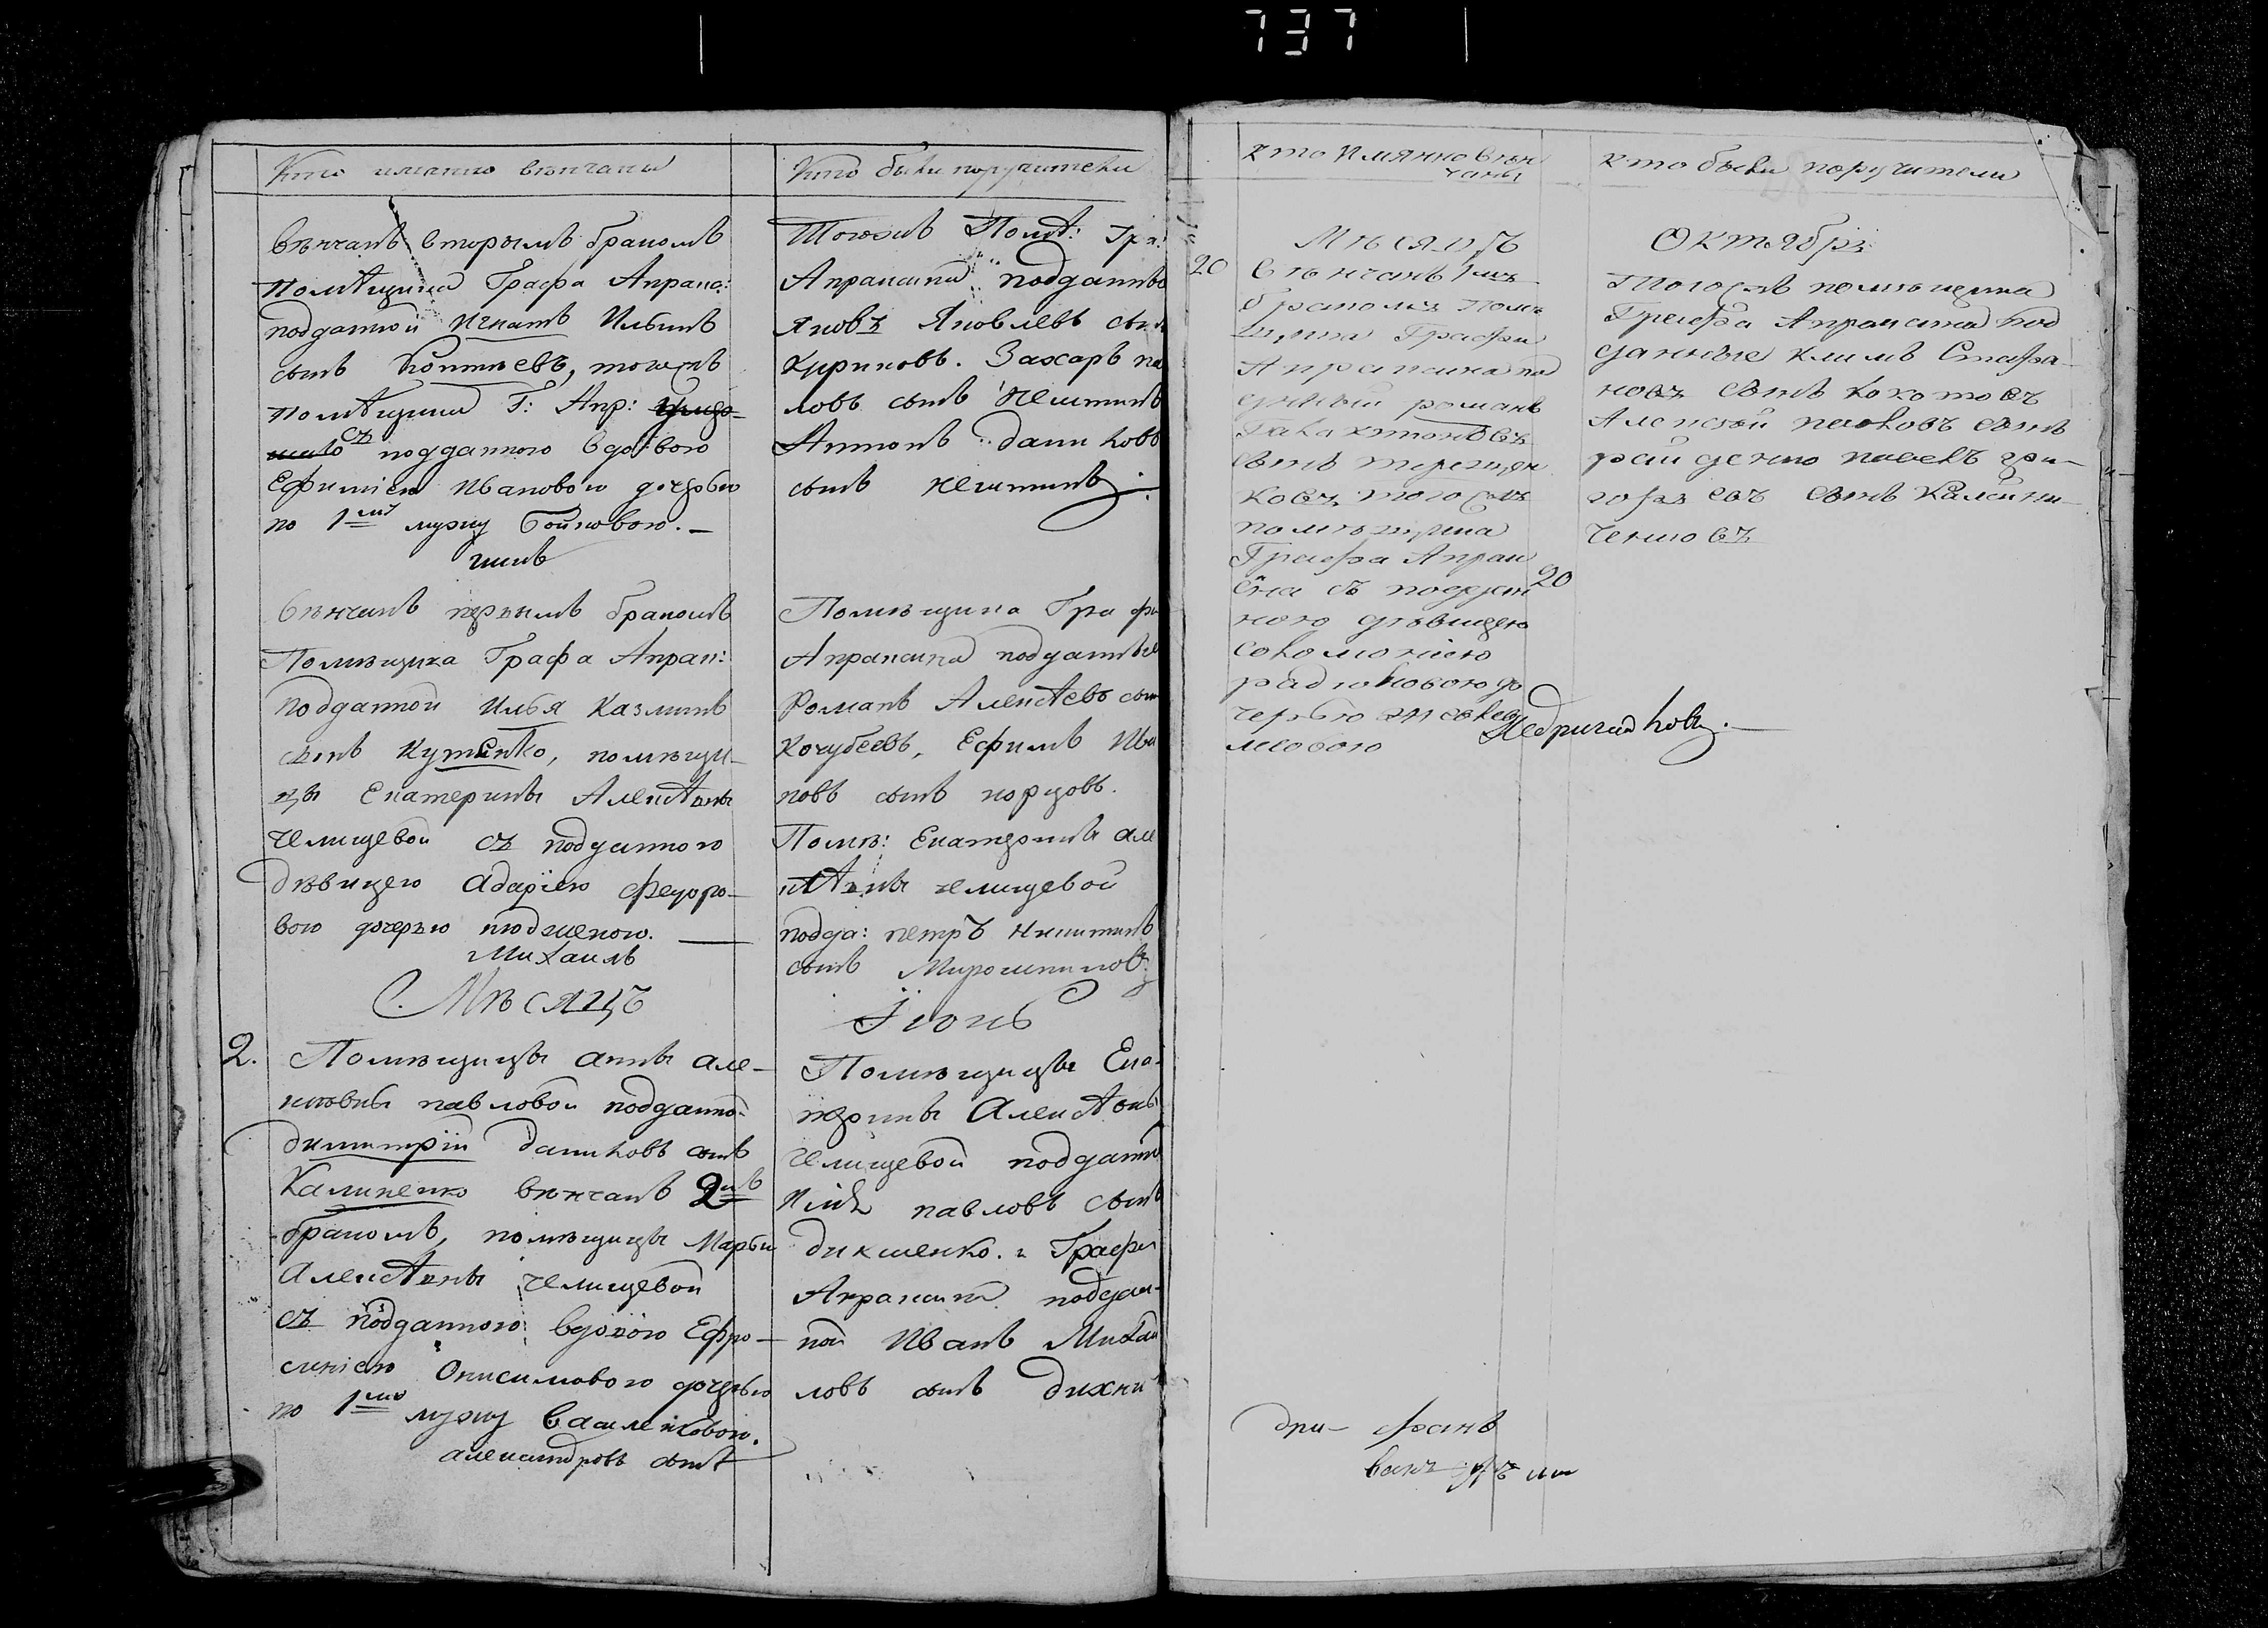 737
Кто имянно венчаны
венчанъ вторымъ бракомъ
помѣщика Графа Апрак:
подданной Игнатъ Ильинъ
сынъ тогожъ
помѣщика Г: Апр:
съ подданною вдовою
Ефиміею Ивановою дочерью
по 1му мужу Бойковою.
Вѣнчанъ первымъ бракомъ
Помѣщика Графа Апрак:
подданной Илья Казминъ
сынъ Кутенко, помѣщи-
цы Екатерины Алексѣвны
Челищевой съ подданною
дѣвицею Адаріею Федоро-
вою дочерью
Михаилъ
Мѣсяцъ
2. Помѣщицы Анны Але-
ксѣевны Павловой подданной
Димитрій Даниловъ сынъ
Калиненко вѣнчанъ 2мъ
бракомъ, помѣщицы Марьи
Алексѣвны Челищевой
съ подданною вдовою Ефро-
синіею Онисимовою дочерью
по 1му мужу Василенковою.
александровъ сынъ
Кто были поручители
Тогожъ Помѣ: Гра:
Апраксина подданные
Яковъ Яковлевъ сынъ
Кириковъ. Захаръ па
ловъ сынъ
Антонъ Даниловъ
сынъ
Помѣщика Графа
Апраксина подданные
Романъ Алексѣевъ сын
Кочубеевъ, Ефимъ Ива
новъ сынъ
Помѣ: Екатерины Але
ксѣвны Челищевой
подда: петръ Никитинъ
сынъ Мирошниковъ
Іюнь
Помѣщицы Ека-
терины Алексѣвны
Челищевой подданн
павловъ сынъ
Дикшенко. и Графа
Апраксина поддан-
ной Иванъ Михаи
ловъ сынъ Дихни
кто Имянно вѣн
чаны
Мѣсяцъ
20 Вѣнчанъ 1мъ
бракомъ помѣ
щика Графа
Апраксина под
данный романъ
сынъ терещен
ковъ тогожъ
помѣщика
Графа Апрак
сина съ поддан
ною дѣвицею
Соломоніею
радіоновою до
черью
20
кто были поручители
Октябрь
Тогожъ помѣщика
Графа Апраксина под
данные Климъ Стефа-
новъ сынъ
Алексѣй павловъ сынъ
павелъ гри-
горьевъ сынъ Калини-
ченковъ
Недригайловъ.